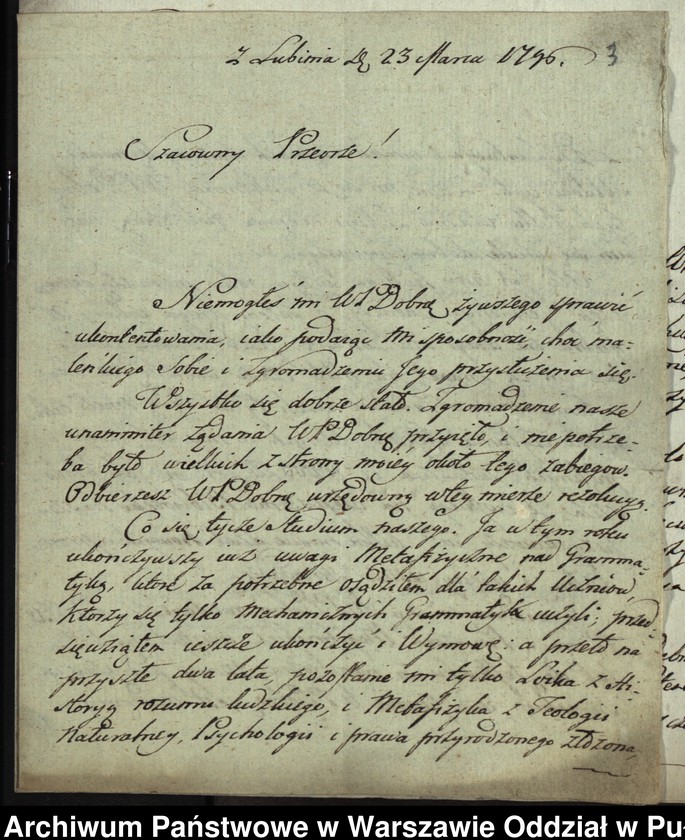 z Lubinia D. 23 Marca 1796.
3
Szacowny Przeorze!
Niemogłeś mi WP Dobrę żywszego sprawić
ukontentowania, iako podaiąc mi sposobność, choć ma=
leńkiego Sobie i Zgromadzeniu Jego przysłużenia się.
Wszystko się dobrze stało. Zgromadzenie nasze
unanimiter żądania WP Dobrę przyięło, i niepotrze=
ba było wielkich z strony moiéy około tego zabiegow.
Odbierzesz WP Dobrę urzędową w tey mierze rezolucyą.
Co się tycze Studium naszego. Ja w tym roku
ukończywszy iuż uwagi Metafizyczne nad Gramma=
tyką, które za potrzebne osądziłem dla takich Uczniów,
Którzy się tylko mechanicznych Grammatyk uczyli; przed=
sięwziąłem ieszcze ukończyć i Wymowę: a przeto na
przyszłe dwa lata, pozostanie mi tylko Loika z Hi=
storyą rozumu ludzkiego, i Metafizyka z Teologii
Naturalney, Psychologii i prawa przyrodzonego złożona,
Archiwum Państwowe w Warszawie Oddział w Pu